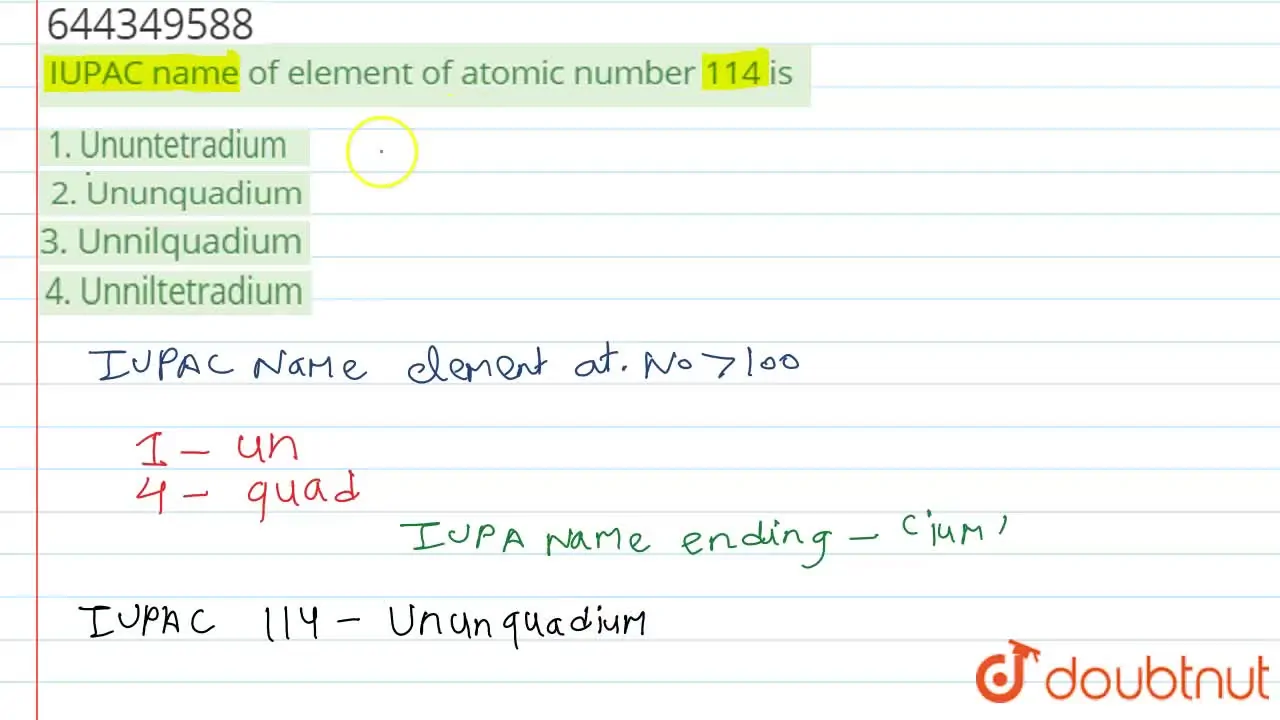 644349588
IUPAC name of element of atomic number 114 is
1. Ununtetradium
2. Ununquadium
3. Unnilquadium
4. Unniltetradium
IUPAC Name element at. No > 100
1 - un
4 - quad
IUPA Name ending - 'ium'
IUPAC 114 - Ununquadium
doubtnut